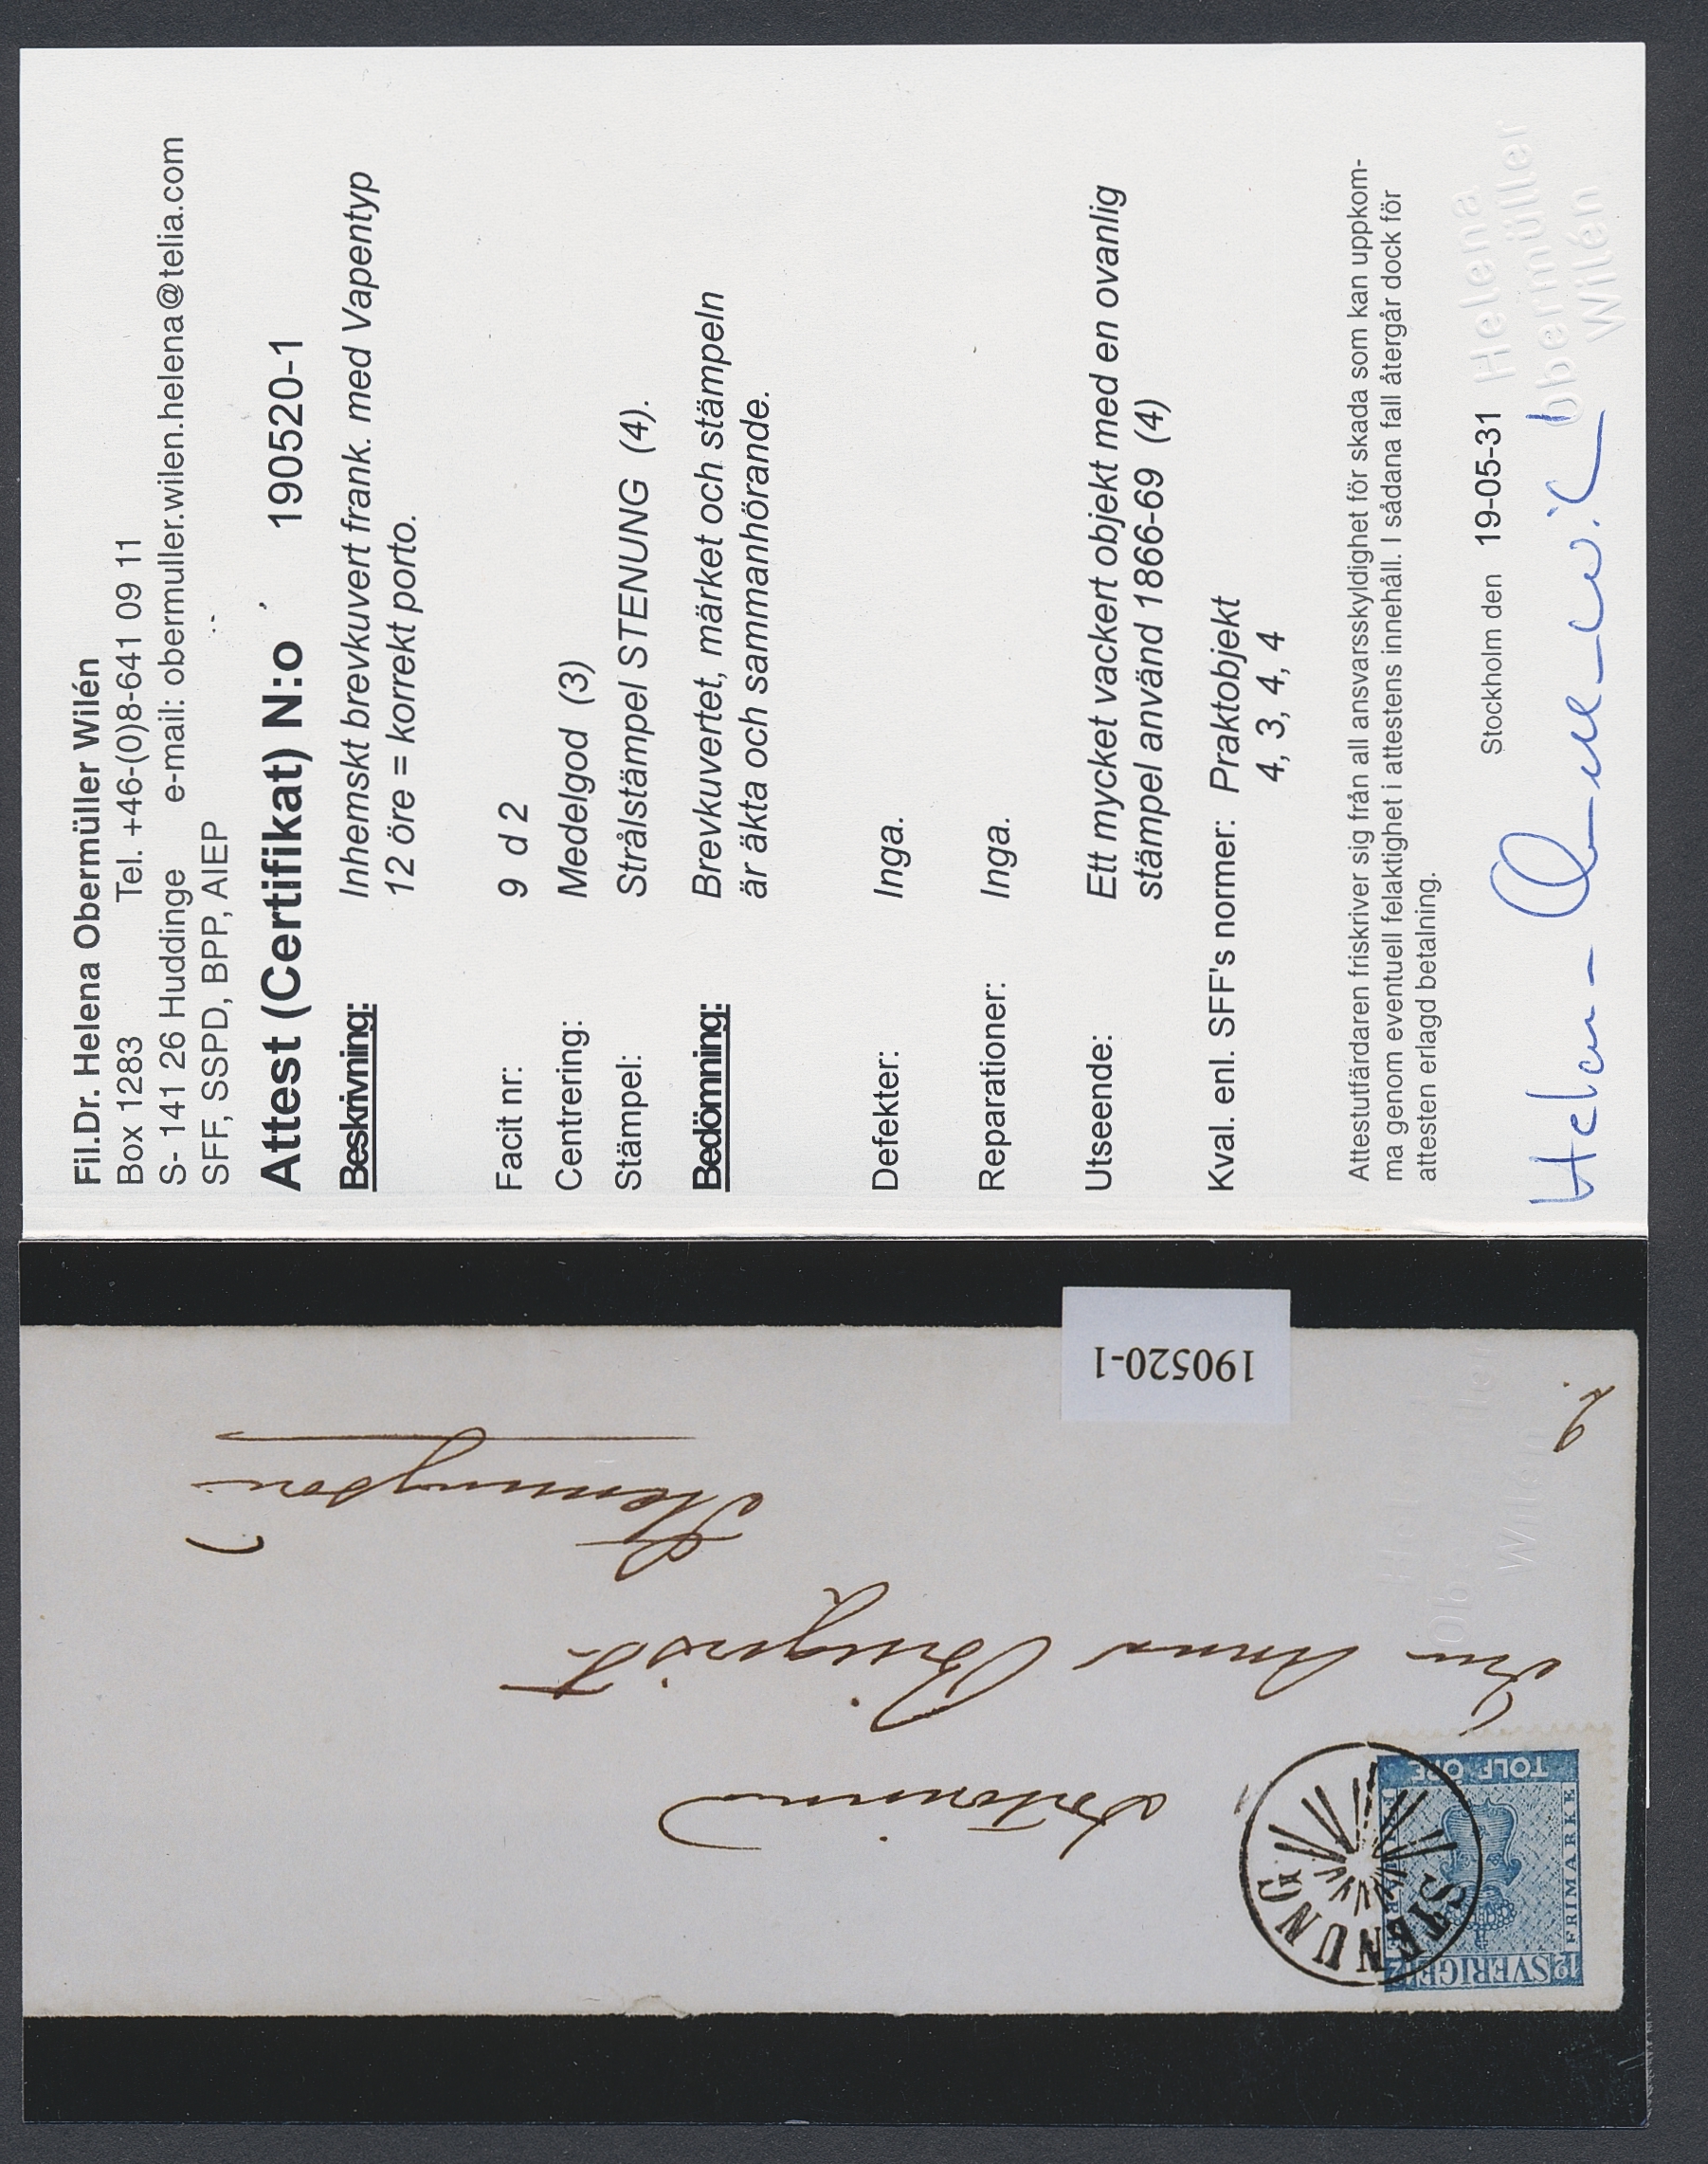 Fil.Dr. Helena Obermüller Wilén
Box 1283 Tel. +46-(0)8-641 09 11
S- 141 26 Huddinge e-mail: obermuller.wilen.helena@telia.com
SFF, SSPD, BPP, AIEP
Attest (Certifikat) N:o 190520-1
Beskrivning: Inhemskt brevkuvert frank. med Vapentyp
12 öre = korrekt porto.
Facit nr: 9 d 2
Centrering: Medelgod (3)
Stämpel: Strålstämpel STENUNG (4).
Bedömning: Brevkuvertet, märket och stämpeln
är äkta och sammanhörande.
Defekter: Inga.
Reparationer: Inga.
Utseende: Ett mycket vackert objekt med en ovanlig
stämpel använd 1866-69 (4)
Kval. enl. SFF's normer: Praktobjekt
4, 3, 4, 4
Attestutfärdaren friskriver sig från all ansvarsskyldighet för skada som kan uppkom-
ma genom eventuell felaktighet i attestens innehåll. I sådana fall återgår dock för
attesten erlagd betalning.
Stockholm den 19-05-31
Helena
Obermüller
Wilén
190520-1
STENUNG
12 SVERIGE 12
FRIMARKE
TOLF ÖRE
Anna
Wilén